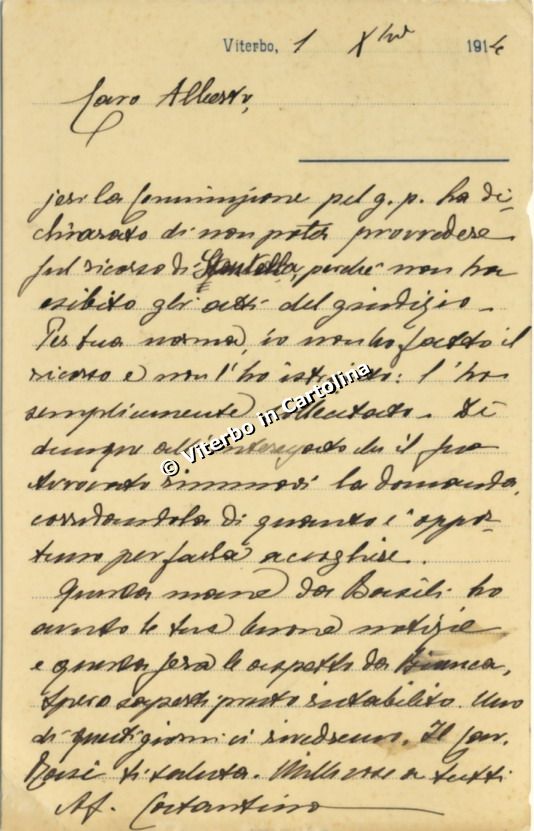 Viterbo, 1 Xbre 1914
Caro Alberto,
jeri la Commissione pel g. p. ha di-
chiarato di non poter provvedere
sul ricorso di perché non ha
esibito gli atti del giudizio.
Per tua norma, io non ho fatto il
ricorso e non l'ho istruito: l'ho
semplicemente sollecitato. Di
dunque all'interessato che il suo
Avvocato rinnovi la domanda,
corredandola di quanto è oppor-
tuno per farla accogliere.
Questa mane da Basili ho
avuto le tue buone notizie
e questa sera le aspetto da Bianca.
Spero saperti presto ristabilito. Uno
di questi giorni ci rivedremo. Il Cav.
ti saluta. Mille cose a tutti
Af. Costantino
© Viterbo in Cartolina